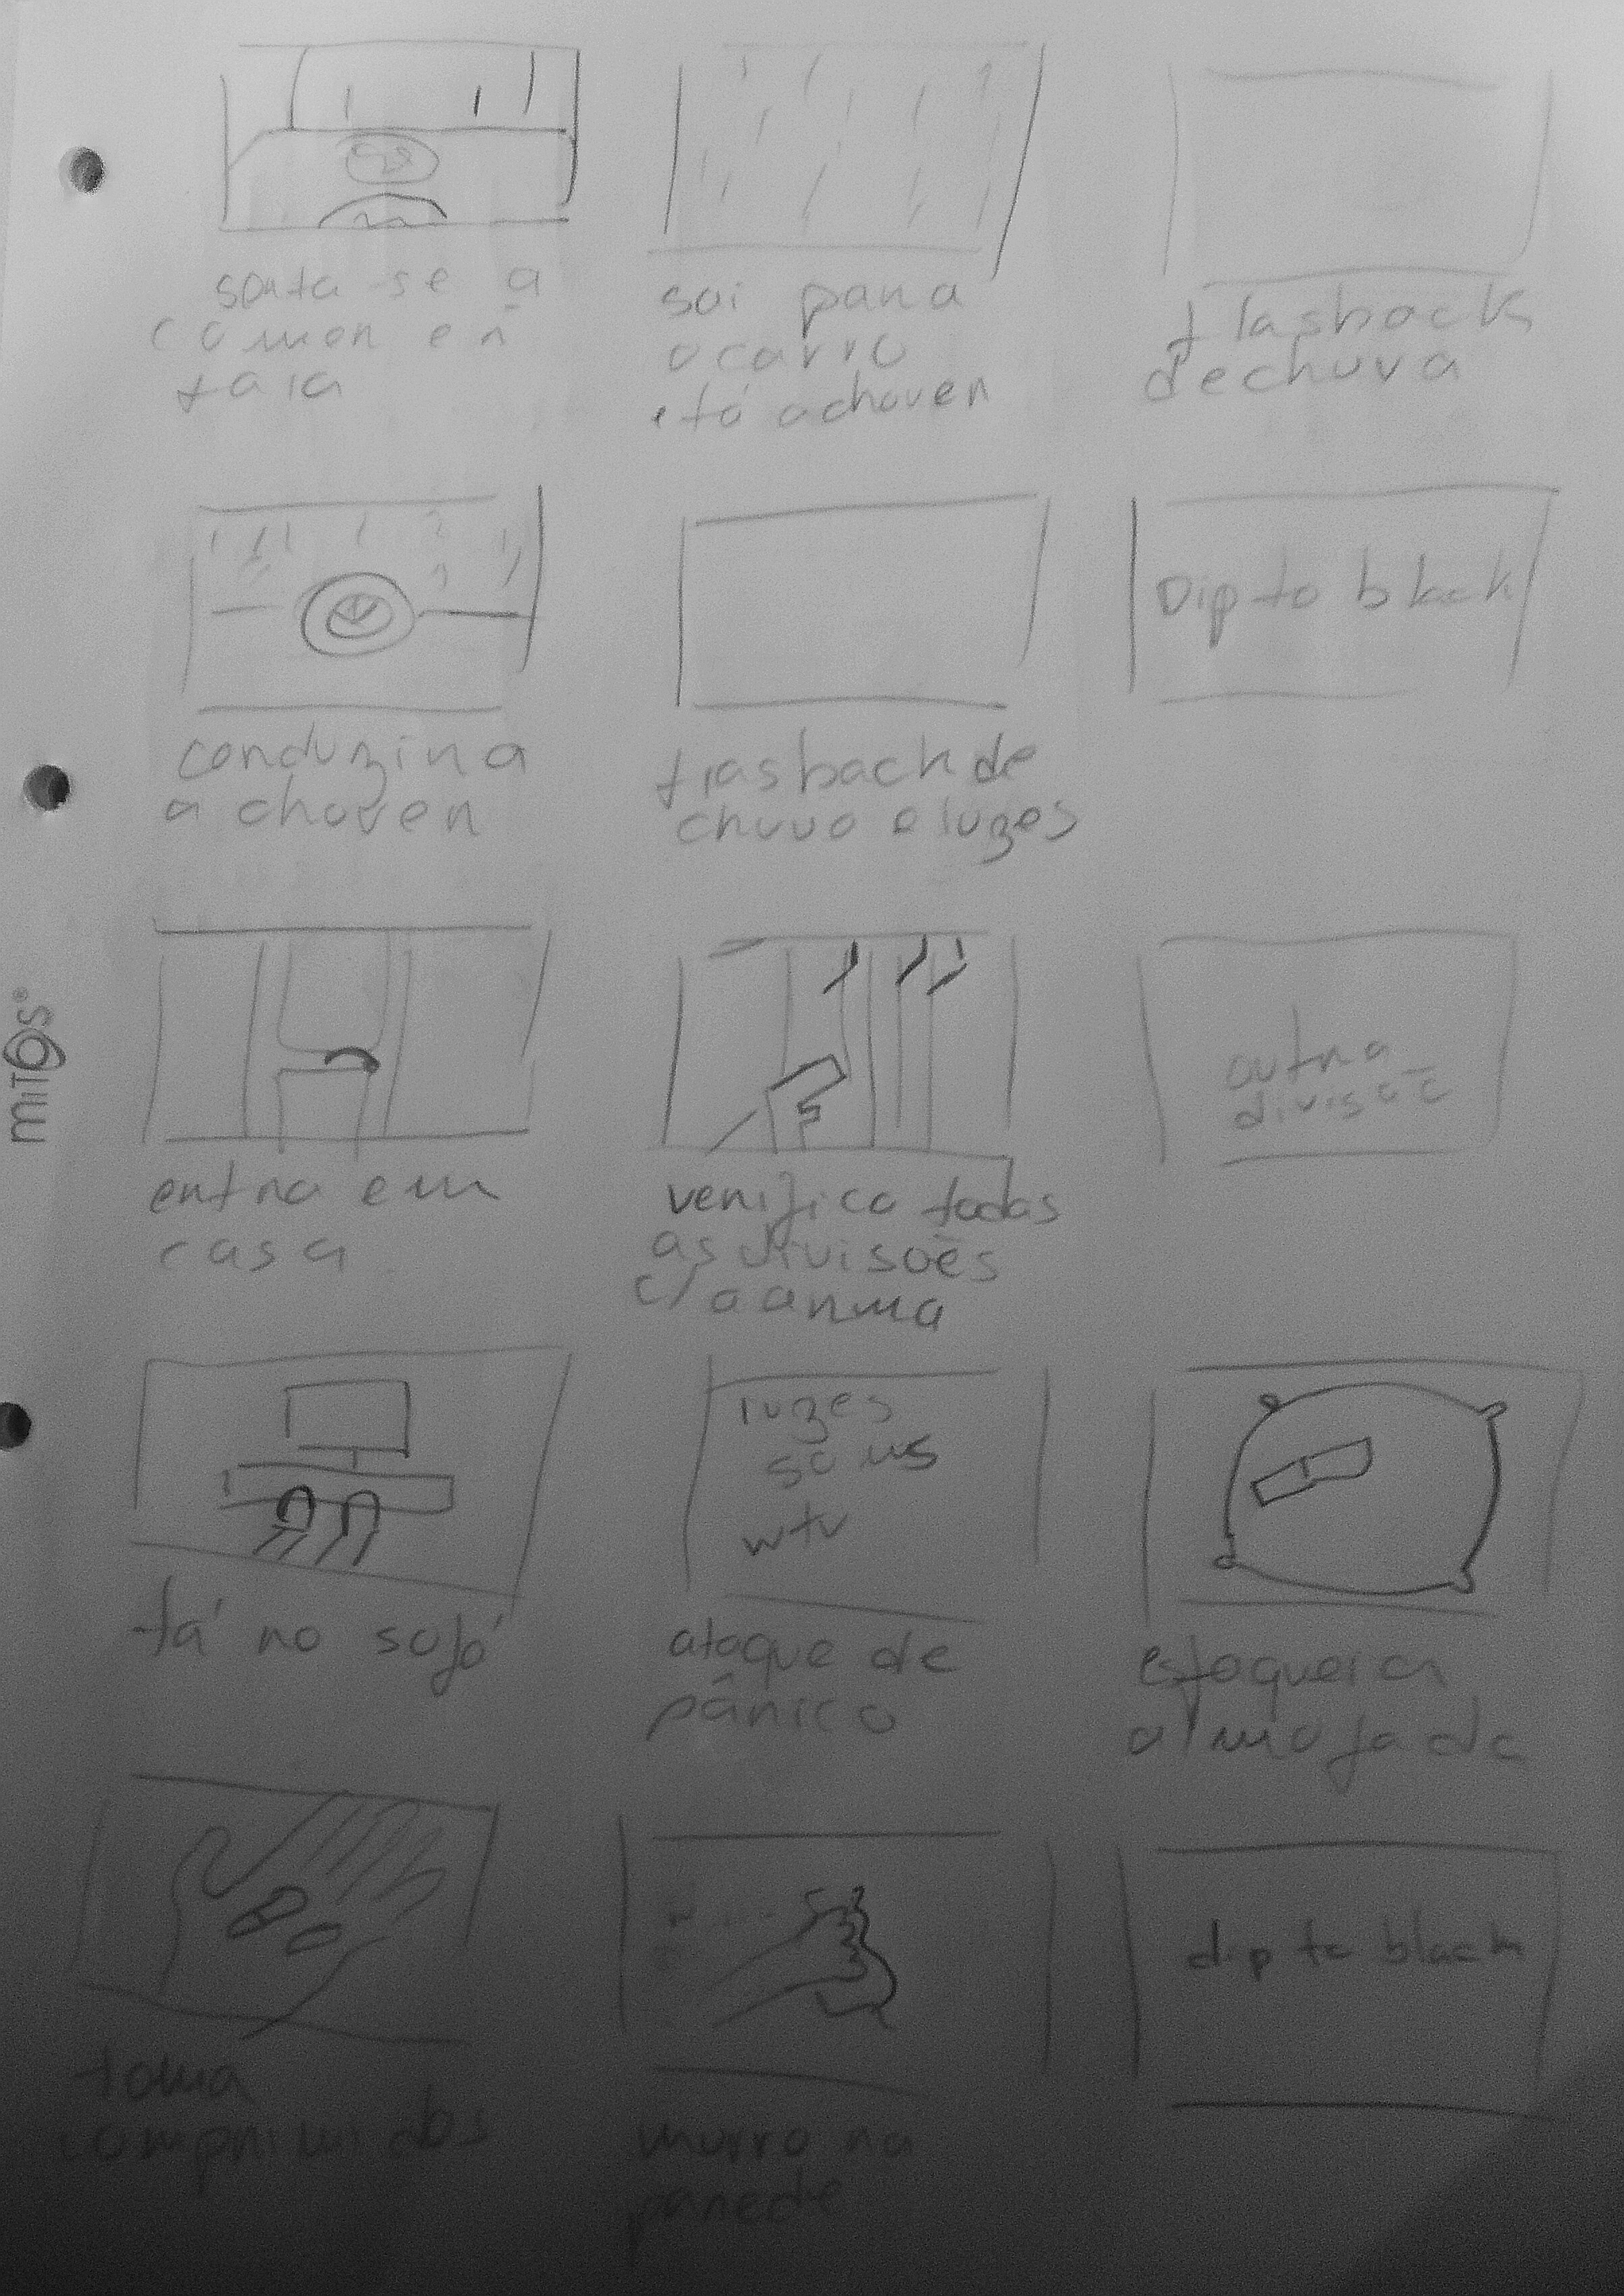 senta-se a
comer e ñ
fala
sai para
o carro
e tá a chover
flasback
de chuva
conduzir a
a chover
flasback de
chuva e luzes
Dip to black
mitos®
entra em
casa
verifica todas
as divisões
c/ a arma
outra
divisão
tá no sofá
luzes
sons
wtv
ataque de
pânico
esfaqueia
almofada
toma
comprimidos
murro na
parede
dip to black